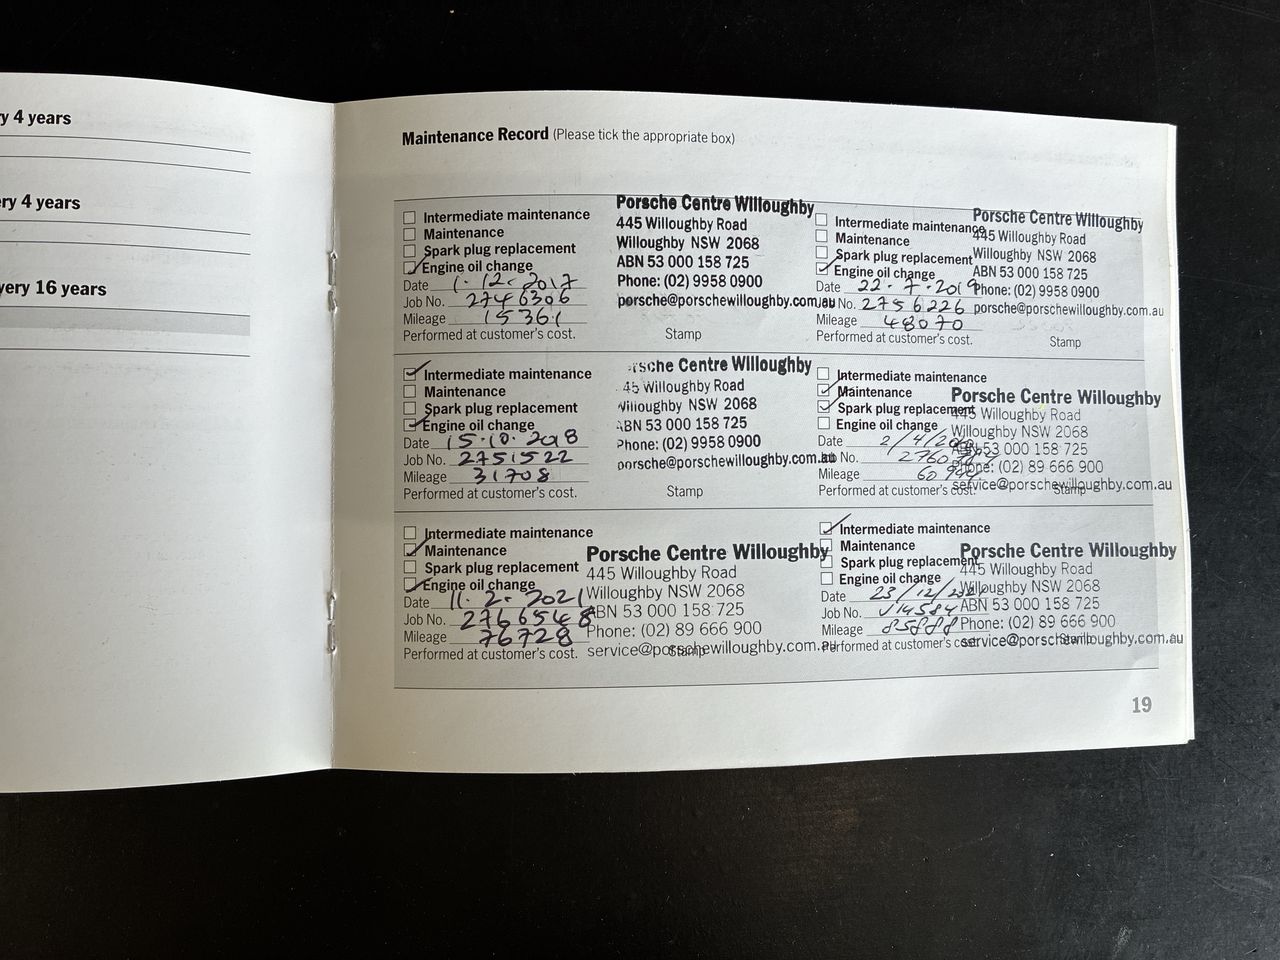 ry 4 years
ery 4 years
very 16 years
Maintenance Record (Please tick the appropriate box)
Intermediate maintenance
Maintenance
Spark plug replacement
Engine oil change
Date 1.12.2017
Job No. 2746306
Mileage 15361
Performed at customer's cost.
Porsche Centre Willoughby
445 Willoughby Road
Willoughby NSW 2068
ABN 53 000 158 725
Phone: (02) 9958 0900
porsche@porschewilloughby.com.au
Stamp
Intermediate maintenance
Maintenance
Spark plug replacement
Engine oil change
Date 22.7.2019
Job No. 2756226
Mileage 48070
Performed at customer's cost.
Porsche Centre Willoughby
445 Willoughby Road
Willoughby NSW 2068
ABN 53 000 158 725
Phone: (02) 9958 0900
porsche@porschewilloughby.com.au
Stamp
Intermediate maintenance
Maintenance
Spark plug replacement
Engine oil change
Date 15.10.2018
Job No. 2751522
Mileage 31708
Performed at customer's cost.
rsche Centre Willoughby
45 Willoughby Road
Willoughby NSW 2068
ABN 53 000 158 725
Phone: (02) 9958 0900
porsche@porschewilloughby.com.au
Stamp
Intermediate maintenance
Maintenance
Spark plug replacement
Engine oil change
Date
Job No.
Mileage
Performed at customer's cost.
Porsche Centre Willoughby
445 Willoughby Road
Willoughby NSW 2068
ABN 53 000 158 725
Phone: (02) 89 666 900
service@porschewilloughby.com.au
Stamp
Intermediate maintenance
Maintenance
Spark plug replacement
Engine oil change
Date 11.2.2021
Job No. 2766548
Mileage 76728
Performed at customer's cost.
Porsche Centre Willoughby
445 Willoughby Road
Willoughby NSW 2068
ABN 53 000 158 725
Phone: (02) 89 666 900
service@porschewilloughby.com.au
Stamp
Intermediate maintenance
Maintenance
Spark plug replacement
Engine oil change
Date
Job No.
Mileage 85888
Performed at customer's cost.
Porsche Centre Willoughby
445 Willoughby Road
Willoughby NSW 2068
ABN 53 000 158 725
Phone: (02) 89 666 900
service@porschewilloughby.com.au
Stamp
19